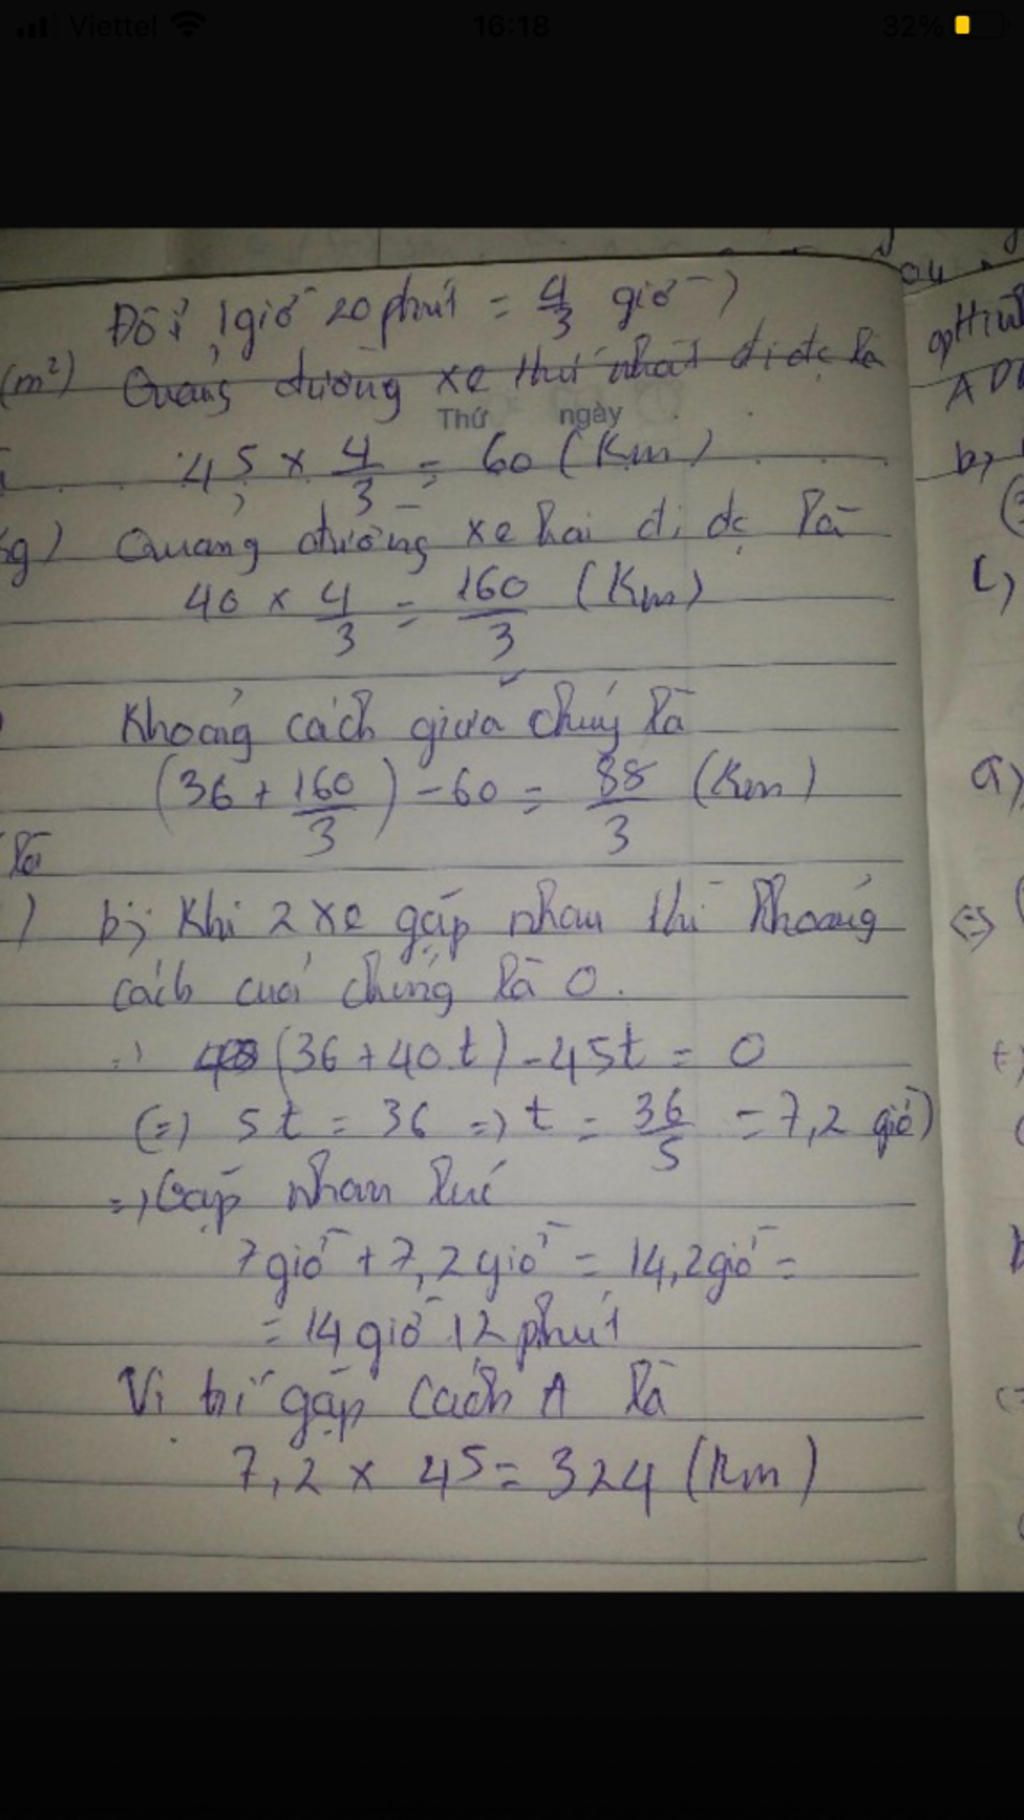 Viettel 16:18 32%
Đổi 1 giờ 20 phút = 4/3 giờ
(m²) Quảng đường xe thứ nhất đi đc là
Thứ ngày
45 × 4/3 = 60 (Km)
g) Quảng đường xe hai đi đc là
40 × 4/3 = 160/3 (Km)
Khoảng cách giữa chúng là
(36 + 160/3) - 60 = 88/3 (Km) a)
là
) b; Khi 2 xe gặp nhau thì khoảng <=>
cách cuả chúng là 0.
=> (36 + 40.t) - 45t = 0
(=) 5t = 36 => t = 36/5 = 7,2 giờ)
=> Gặp nhau lúc
7 giờ + 7,2 giờ = 14,2 giờ =
= 14 giờ 12 phút
Vị trí gặp cách A là
7,2 × 45 = 324 (Km)
04
b,
c,